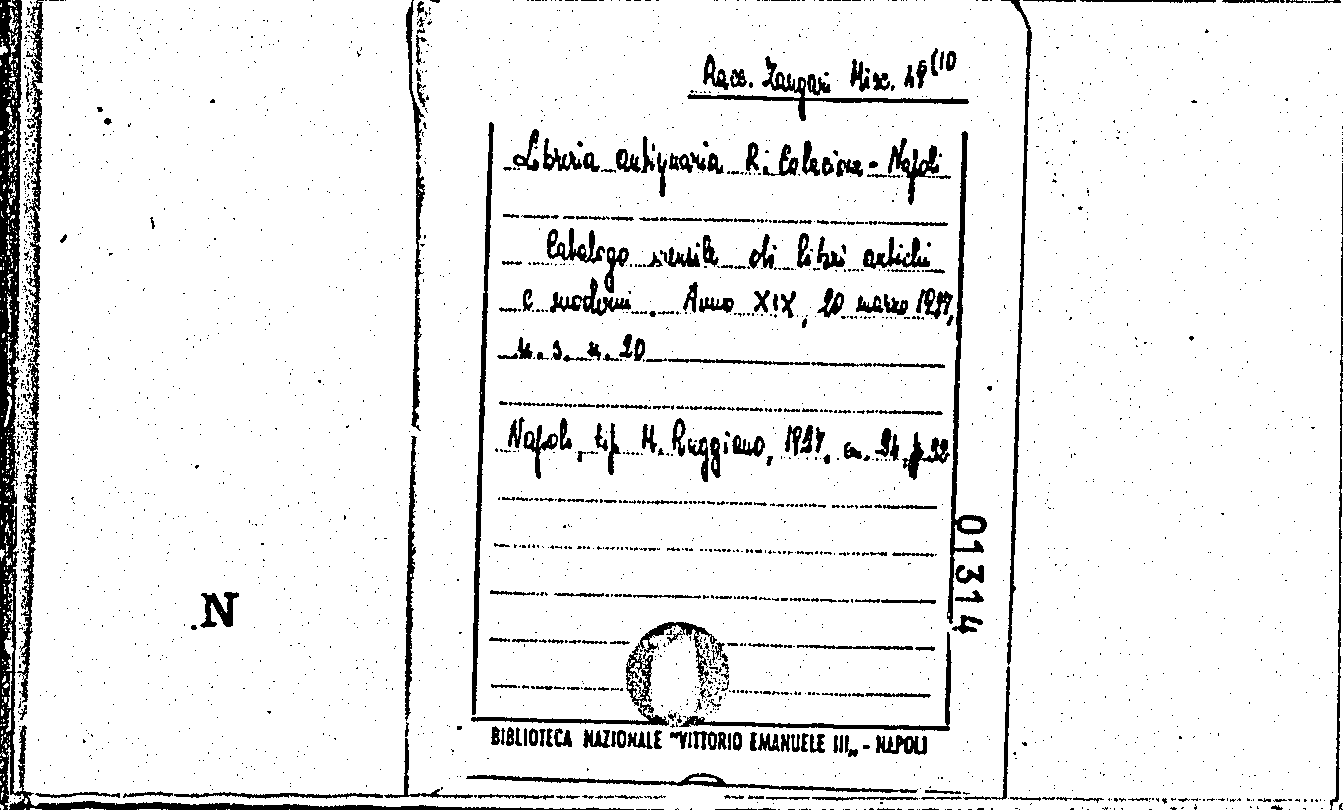 Racc. Zangari Misc. 49(10
Libreria antiquaria R. Colacione - Napoli
Catalogo mensile di libri antichi
e moderni. Anno XIX, 20 marzo 1927,
n. s. n. 20
Napoli, tip. M. Ruggiano, 1927, cm. 24, p. 32
01314
N
BIBLIOTECA NAZIONALE "VITTORIO EMANUELE III„ - NAPOLI